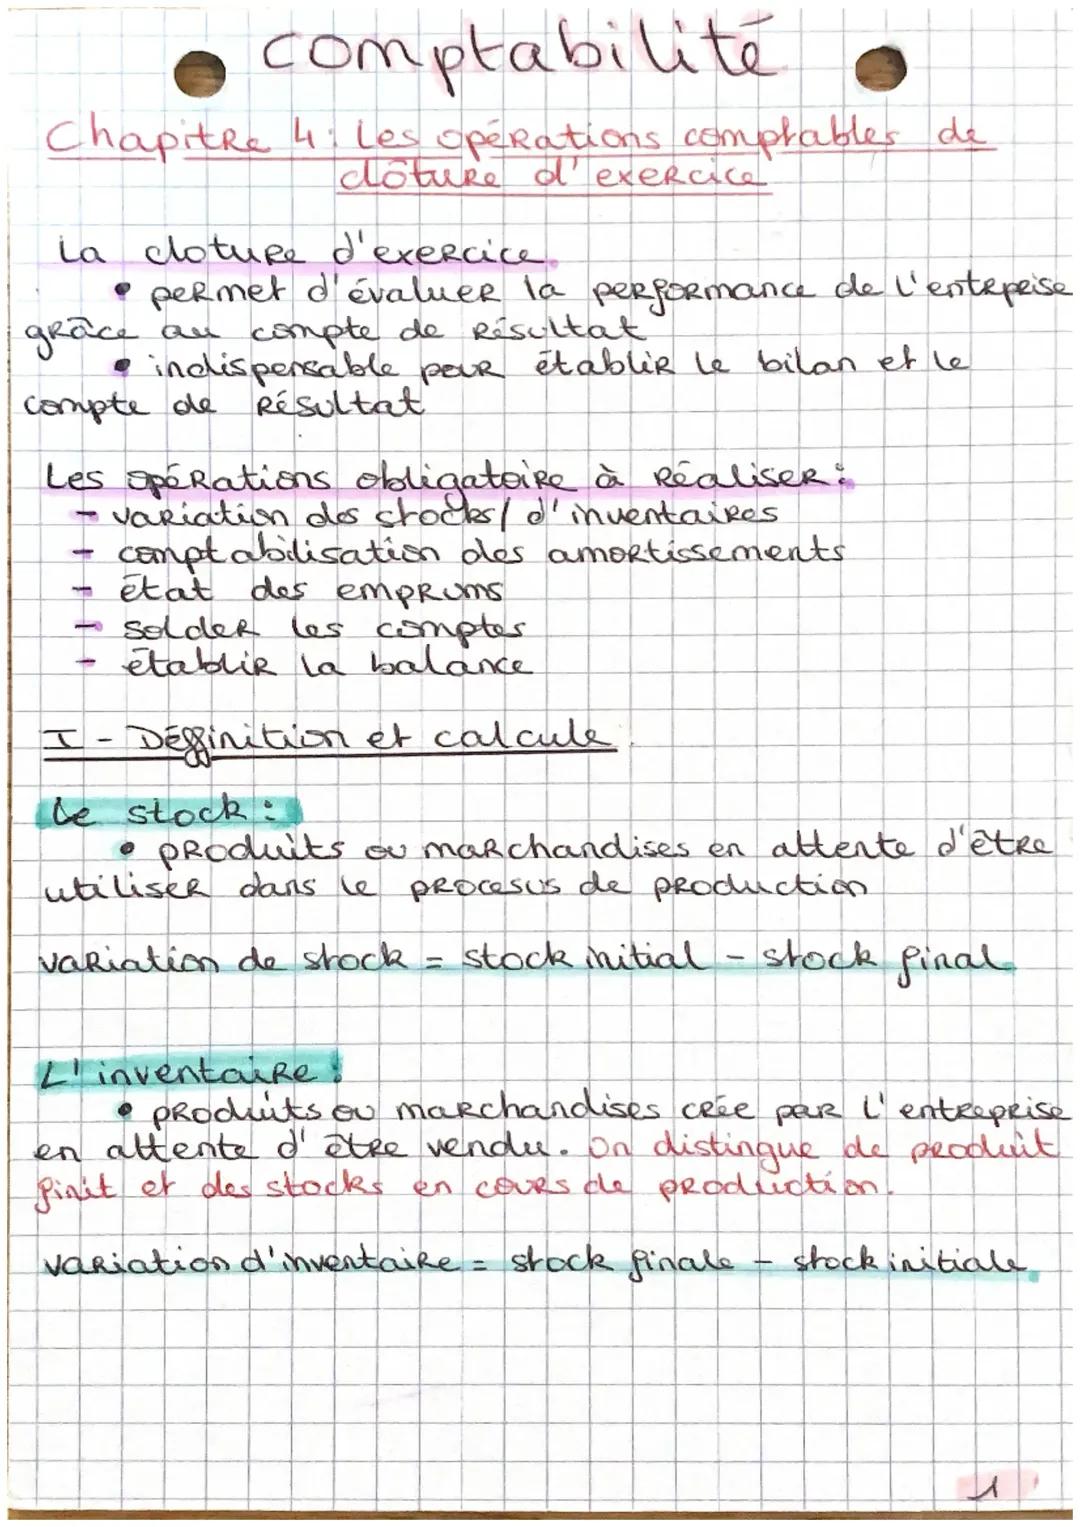 comptabilité
Chapitre 4 : Les opérations comptables de
clôture d'exercice
La cloture d'exercice
• permet d'évaluer la performance de l'entrprise
grâce au compte de résultat
• indispensable pour établir le bilan et le
compte de résultat
Les opérations obligatoire à réaliser :
- variation des stocks / d'inventaires
- comptabilisation des amortissements
- état des empruns
- solder les comptes
- établir la balance
I - Définition et calcule
Le stock :
• produits ou marchandises en attente d'être
utiliser dans le procesus de production
variation de stock = stock initial - stock final
L'inventaire :
• produits ou marchandises crée par l'entreprise
en attente d'être vendu. On distingue de produit
finit et des stocks en cours de production.
variation d'inventaire = stock finale - stock initiale
1